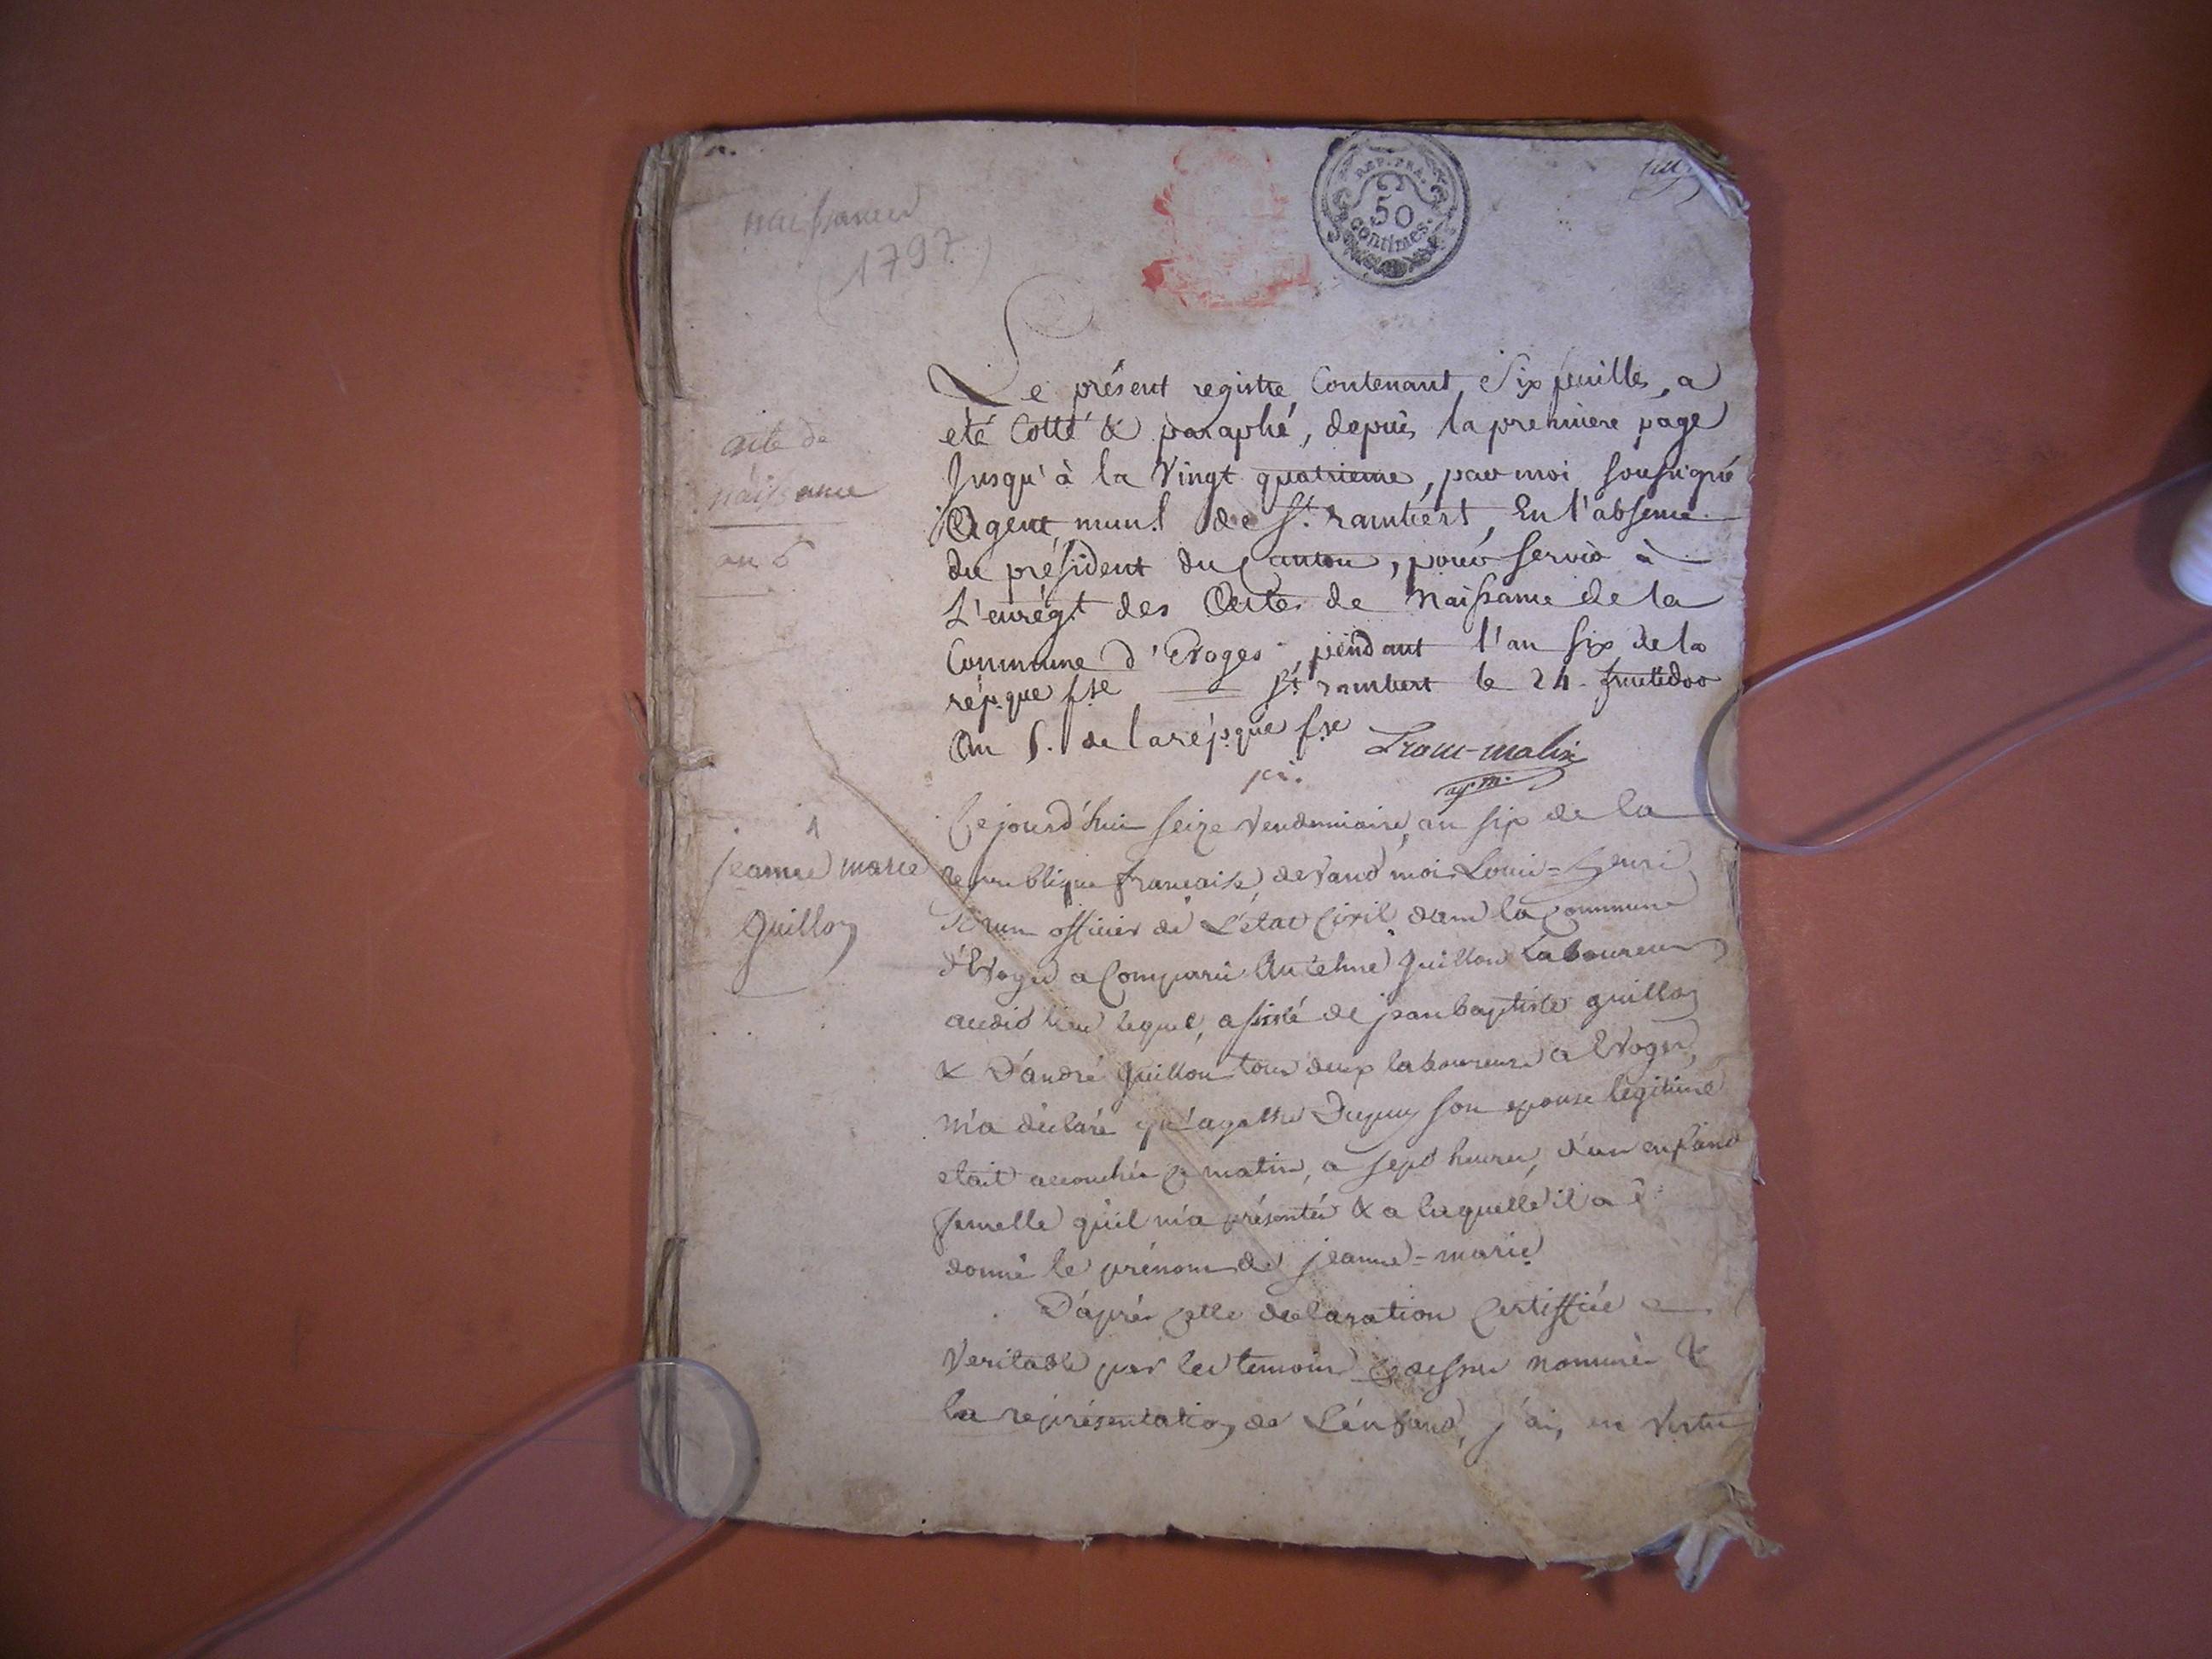 naissances
(1797)
REP. FRA.
50
centimes.
Le présent registre Contenant Six feuilles, a
eté Cotté & paraphé, depuis la premiere page
Jusqu'à la Vingt quatrieme, par moi soussigné
Agent mun.l de St. rambert, En l'absence
du président du Canton, pour servir à
L'enrégt des Actes de Naissance de la
Commune d'Evoges pendant l'an six de la
rép.que f.se St. rambert le 24 fructidor
An 5. de la rép.que f.se
ag. m.
acte de
naissance
an 6
1
jeanne marie
Guillon
Cejourd'hui seize Vendemiaire, an six de la
republique française, devand moi Louis=henri
officier de L'état Civil dans la Commune
d'Evoges a Comparu Antelme Guillon Laboureur
audit lieu lequel, assisté de jean baptiste guillon
& D'andré Guillon tous deux laboureurs a Evoges,
m'a déclaré qu'agathe Dupuy son epouse légitime
etait accouchée ce matin, a sept heures, d'un enfand
femelle qu'il m'a présentée & a laquelle il a
donné le prénom de jeanne=marie
D'aprés cette declaration Certiffiée
Veritable par les temoins ci dessus nommés &
la représentation de L'enfand, j'ai, en vertu